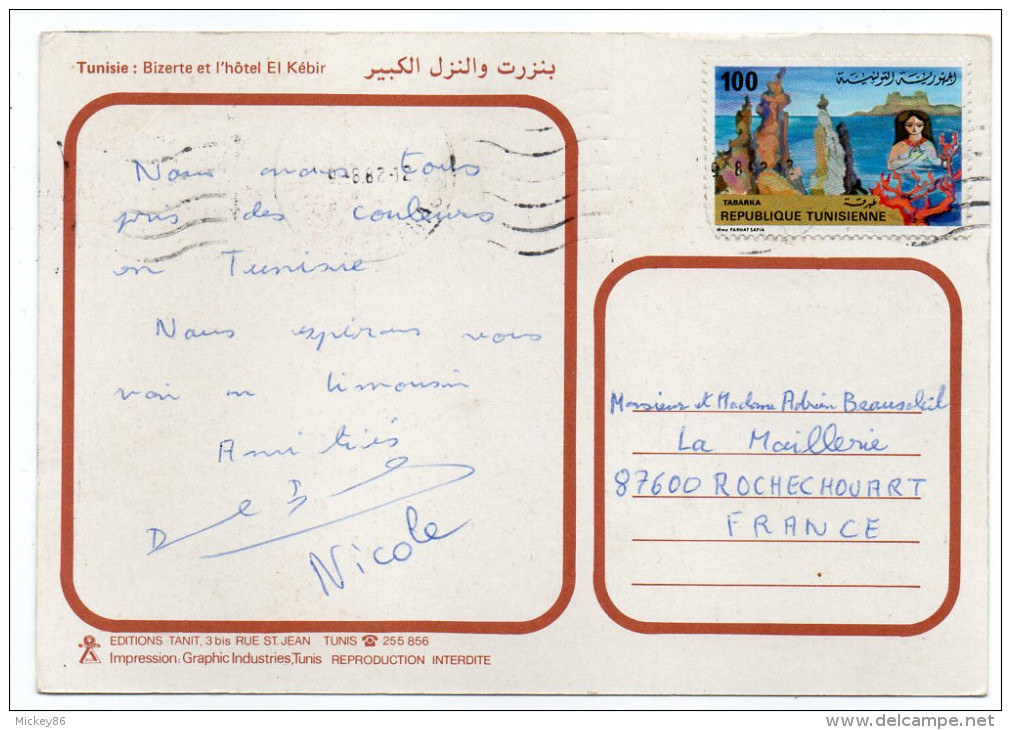 Tunisie : Bizerte et l'hôtel El Kébir بنزرت والنزل الكبير
100 الجمهورية التونسية
TABARKA طبرقة
REPUBLIQUE TUNISIENNE
Mme FARHAT SAFIA
8.82-12
Nous nous tous
pris des couleurs
en Tunisie
Nous espérons vous
voir en limousin
Amitiés
Nicole
Monsieur et Madame Adrien
La Maillerie
87600 ROCHECHOUART
FRANCE
EDITIONS TANIT, 3 bis RUE ST. JEAN TUNIS ☎ 255 856
Impression: Graphic Industries, Tunis REPRODUCTION INTERDITE
Mickey86
delcampe.net